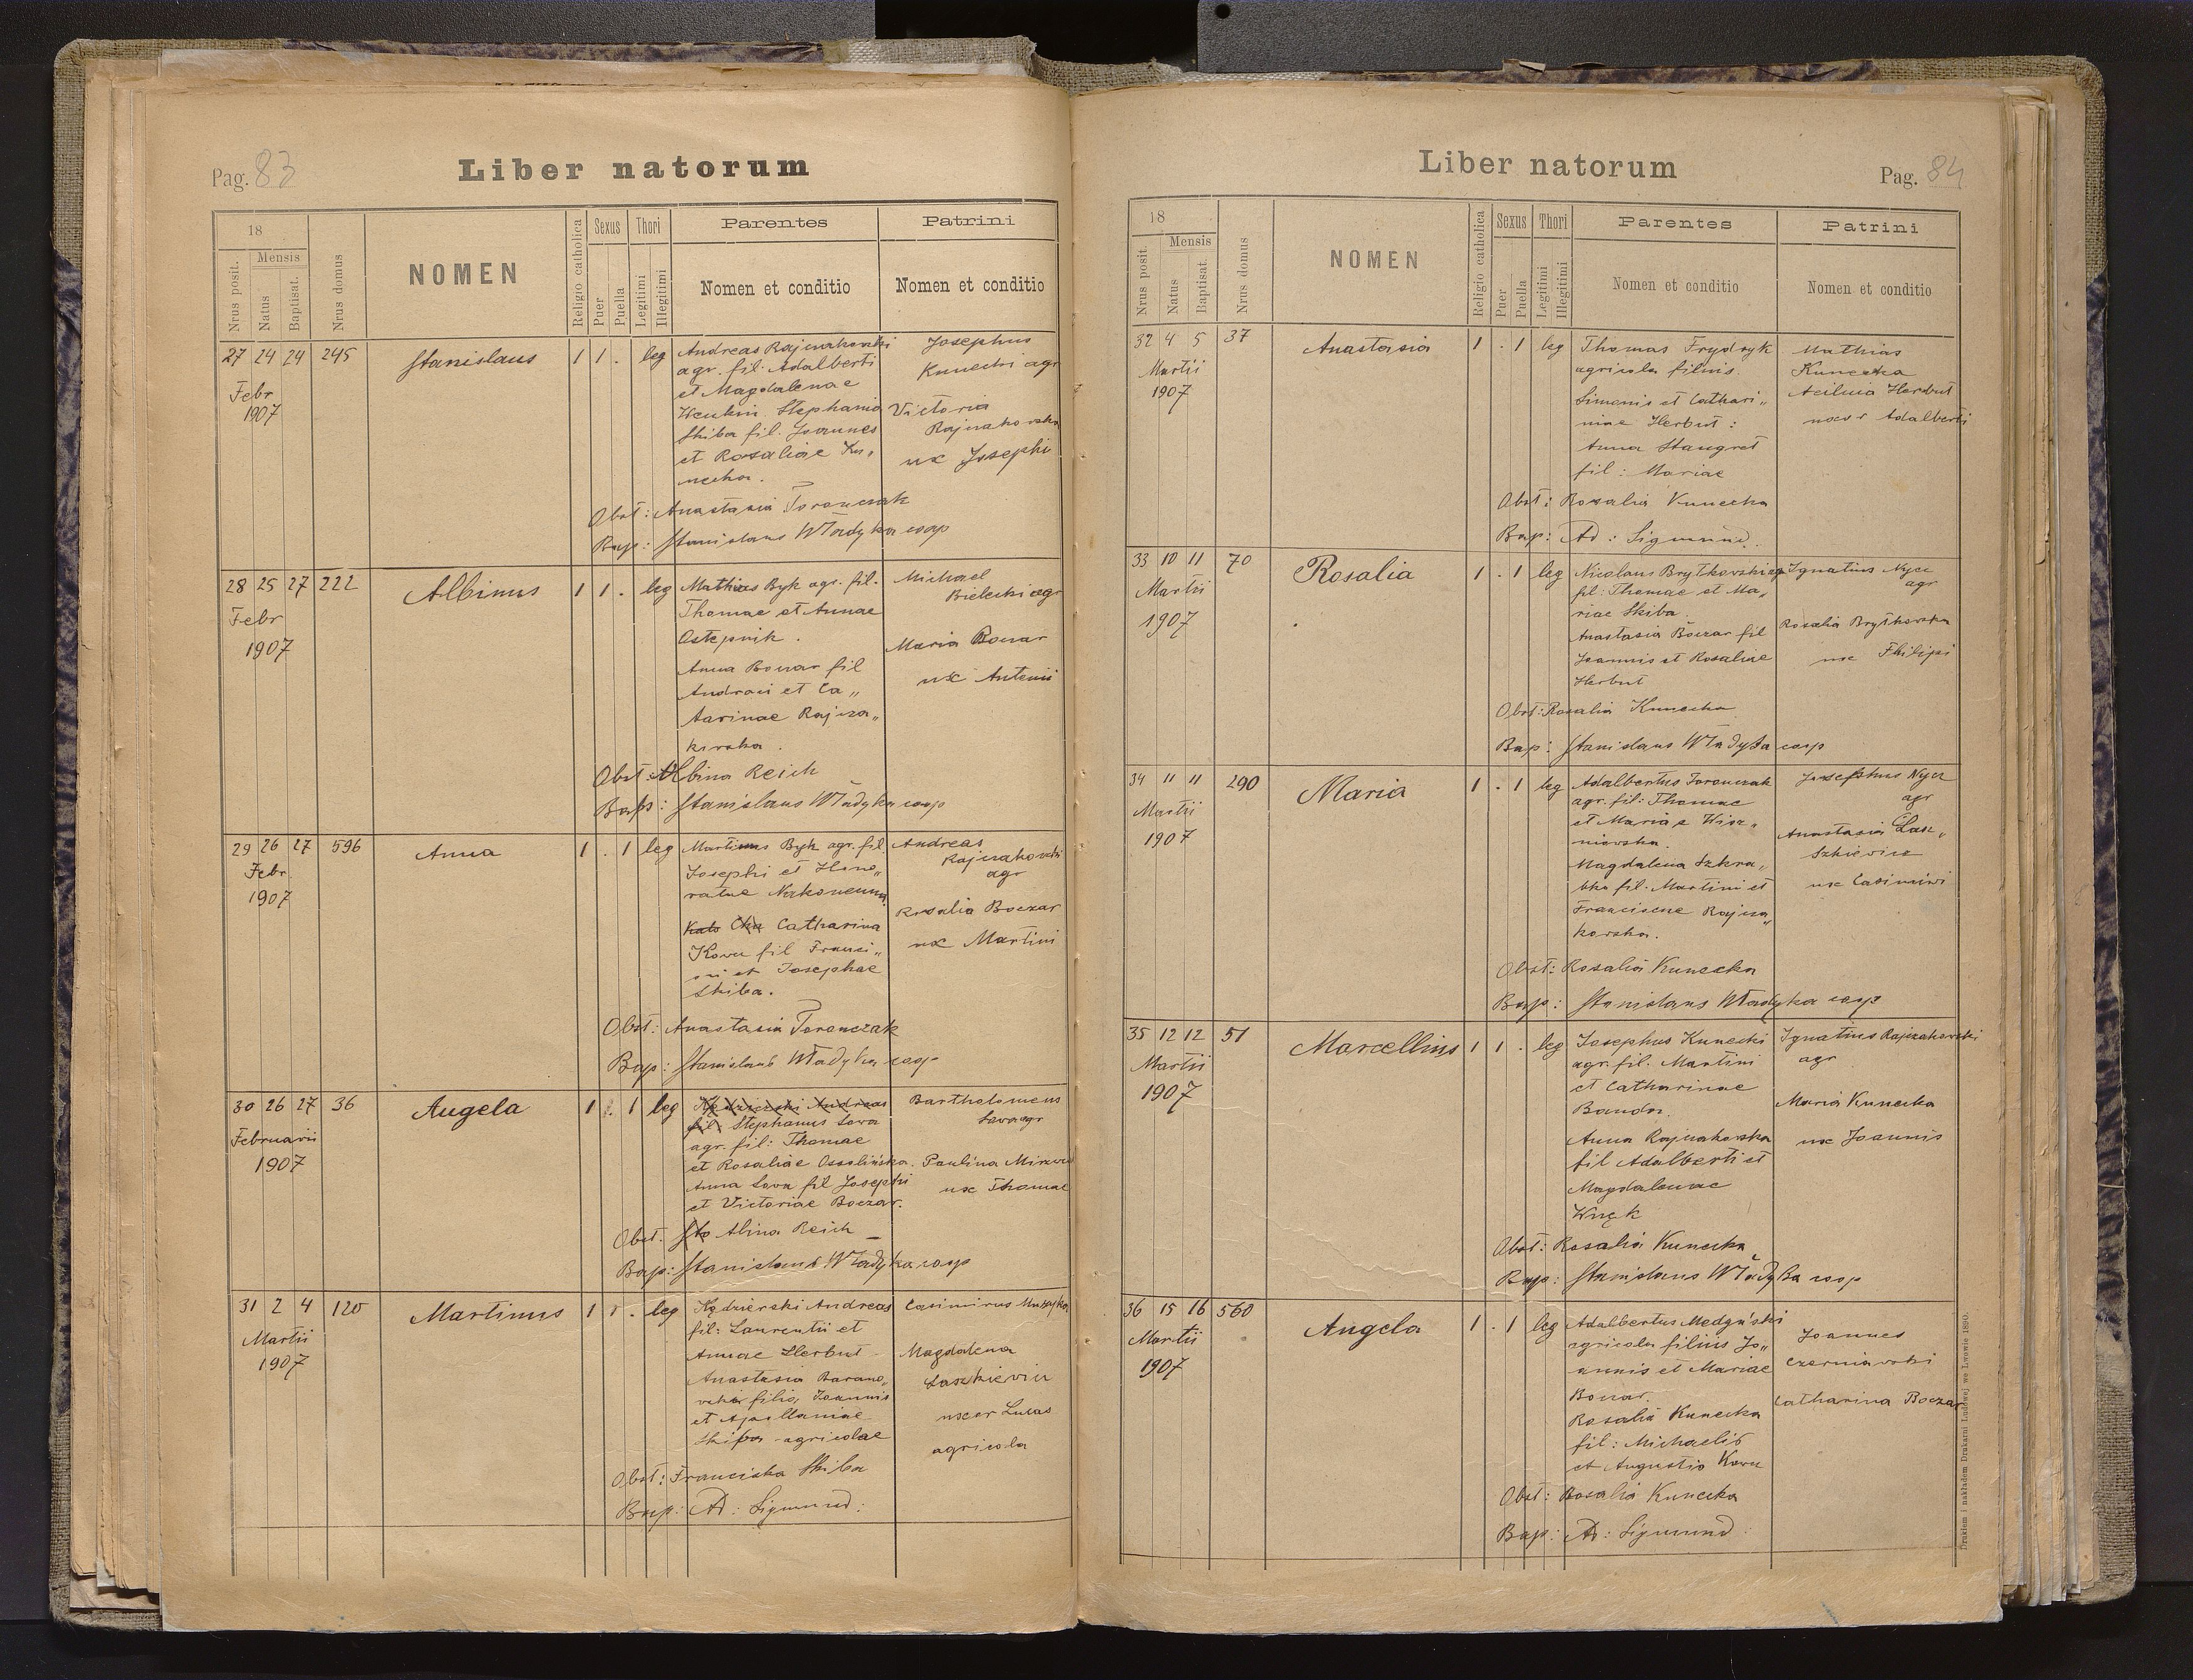 Pag. 83
Liber natorum
18
Mensis
Nrus posit.
Natus
Baptisat.
Nrus domus
NOMEN
Religio catholica
Sexus
Puer
Puella
Thori
Legitimi
Illegitimi
Parentes
Nomen et conditio
Patrini
Nomen et conditio
27 24 24 245 Stanislaus 1 1 . leg
Febr
1907
Andreas Rajczakowski
agr. fil. Adalberti
et Magdalenae
Stephania
Skiba fil. Joannes
et Rosaliae Ku„
necka.
Josephus
Kunecki agr
Victoria
Rajczakowska
ux Josephi
Obst: Anastasia Toronczak
Bap: Stanislaus Władyka coop
28 25 27 222 Albinus 1 1 . leg
Febr
1907
Mathias Byk agr. fil.
Thomae et Annae
Ostępnik.
Anna Boczar fil
Andraei et Ca„
tarinae Rajcza„
kowska.
Michael
Bielecki agr
Maria Boczar
ux Antonii
Obst: Albina Reich
Bap: Stanislaus Władyka coop
29 26 27 596 Anna 1 . 1 leg
Febr.
1907
Martinus Byk agr. fil.
Josephi et Hono„
ratae
Catharina
Kowu fil Franci„
sci et Josephae
Skiba.
Andreas
Rajczakowski
agr
Rosalia Boczar
ux Martini
Obst: Anastasia Toronczak
Bap: Stanislaus Władyka coop
30 26 27 36 Angela 1 . 1 leg
Februarii
1907
Kędzierski Andreas
fil: Stephanus Sowa
agr. fil: Thomae
et Rosaliae Ossolińska.
Anna Sowa fil Josephi
et Victoriae Boczar.
Bartholomeus
Sowa agr
Paulina
ux Thomae
Obst. Alina Reich
Bap: Stanislaus Władyka coop
31 2 4 120 Martinus 1 1 . leg
Martii
1907
Kędzierski Andreas
fil: Laurentii et
Annae Herbut
Anastasia Barano„
wska filia Joannis
et Apolloniae
Skiba agricolae
Casimirus Muzyka
Magdalena
Łaszkiewicz
uxor Lucas
agricola
Obst: Franciska Skiba
Bap: Ad: Sigmund:
Liber natorum
Pag. 84
18
Mensis
Nrus posit.
Natus
Baptisat.
Nrus domus
NOMEN
Religio catholica
Sexus
Puer
Puella
Thori
Legitimi
Illegitimi
Parentes
Nomen et conditio
Patrini
Nomen et conditio
32 4 5 37 Anastasia 1 . 1 leg
Martii
1907
Thomas Frydryk
agricola filius
Simonis et Cathari„
niae Herbut:
Anna Stangret
fil: Mariae
Mathias
Kunecka
Herbut
uxor Adalberti
Obst: Rosalia Kunecka
Bap: Ad: Sigmund.
33 10 11 70 Rosalia 1 . 1 leg
Martii
1907
Nicolaus Brytkowski agr
fil: Thomae et Ma„
riae Skiba.
Anastasia Boczar fil
Joannis et Rosaliae
Herbut
Ignatius Nycz
agr
Rosalia Brytkowska
ux Philipi
Obst: Rosalia Kunecka
Bap: Stanislaus Władyka coop
34 11 11 290 Maria 1 . 1 leg
Martii
1907
Adalbertus Toronczak
agr. fil: Thomae
et Mariae Wisz„
niowska.
Magdalena Szkra„
bka fil. Martini et
Franciscae Rajcza„
kowska.
Josephus Nycz
agr
Anastasia Łasz„
szkiewicz
ux Casimiri
Obst: Rosalia Kunecka
Bap: Stanislaus Władyka coop
35 12 12 51 Marcellius 1 1 . leg
Martii
1907
Josephus Kunecki
agr. fil. Martini
et Catharinae
Bandor.
Anna Rajczakowska
fil Adalberti et
Magdalenae
Wnęk
Ignatius Rajczakowski
agr
Maria Kunecka
ux Joannis
Obst: Rosalia Kunecka
Bap: Stanislaus Władyka coop
36 15 16 560 Angela 1 . 1 leg
Martii
1907
Adalbertus Medyński
agricola filius Jo„
annis et Mariae
Boczar.
Rosalia Kunecka
fil: Michaelis
et Augustia Kowu
Joannes
Czerniawski
Catharina Boczar
Obst: Rosalia Kunecka
Bap: Ad: Sigmund:
Drukiem i nakładem Drukarni Ludowej we Lwowie 1890.